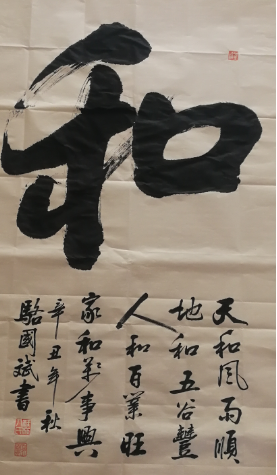 和
天和風雨順
地和五谷豐
人和百業旺
家和萬事興
辛丑年秋
駱國斌書